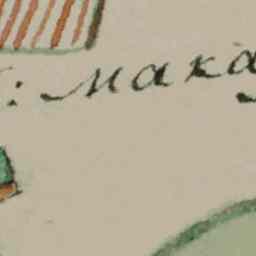 : мака